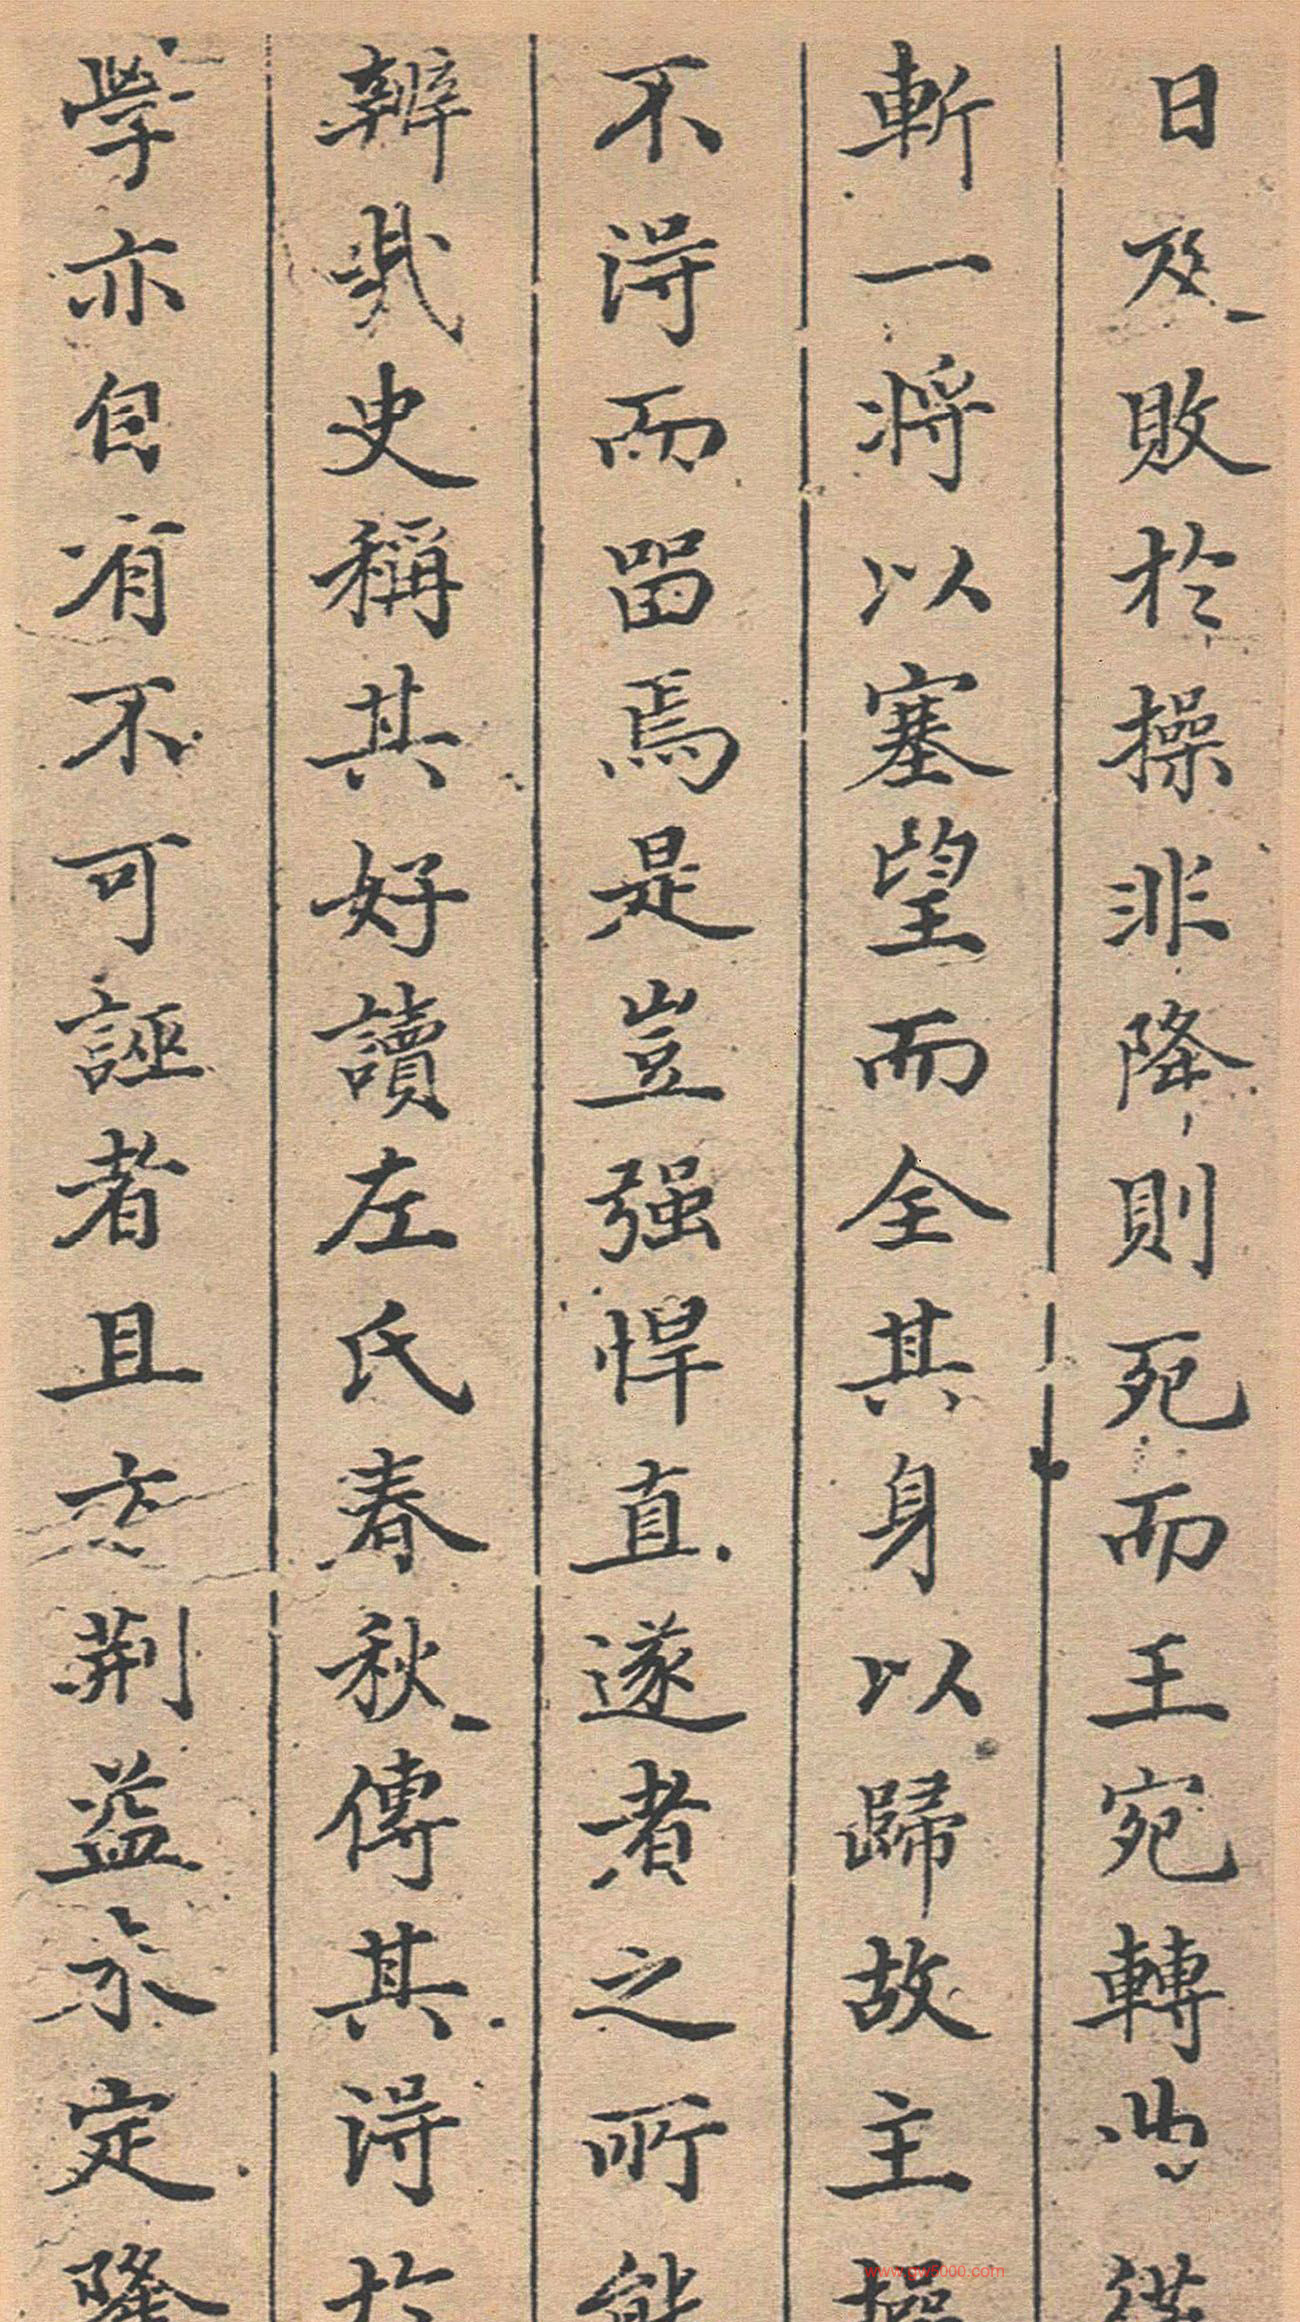 日及敗於操非降則死而王宛轉曲從
斬一將以塞望而全其身以歸故主操
不得而留焉是豈强悍直遂者之所能
辨哉史稱其好讀左氏春秋傳其得於
學亦自有不可誣者且立荆益未定
www.gw5000.com